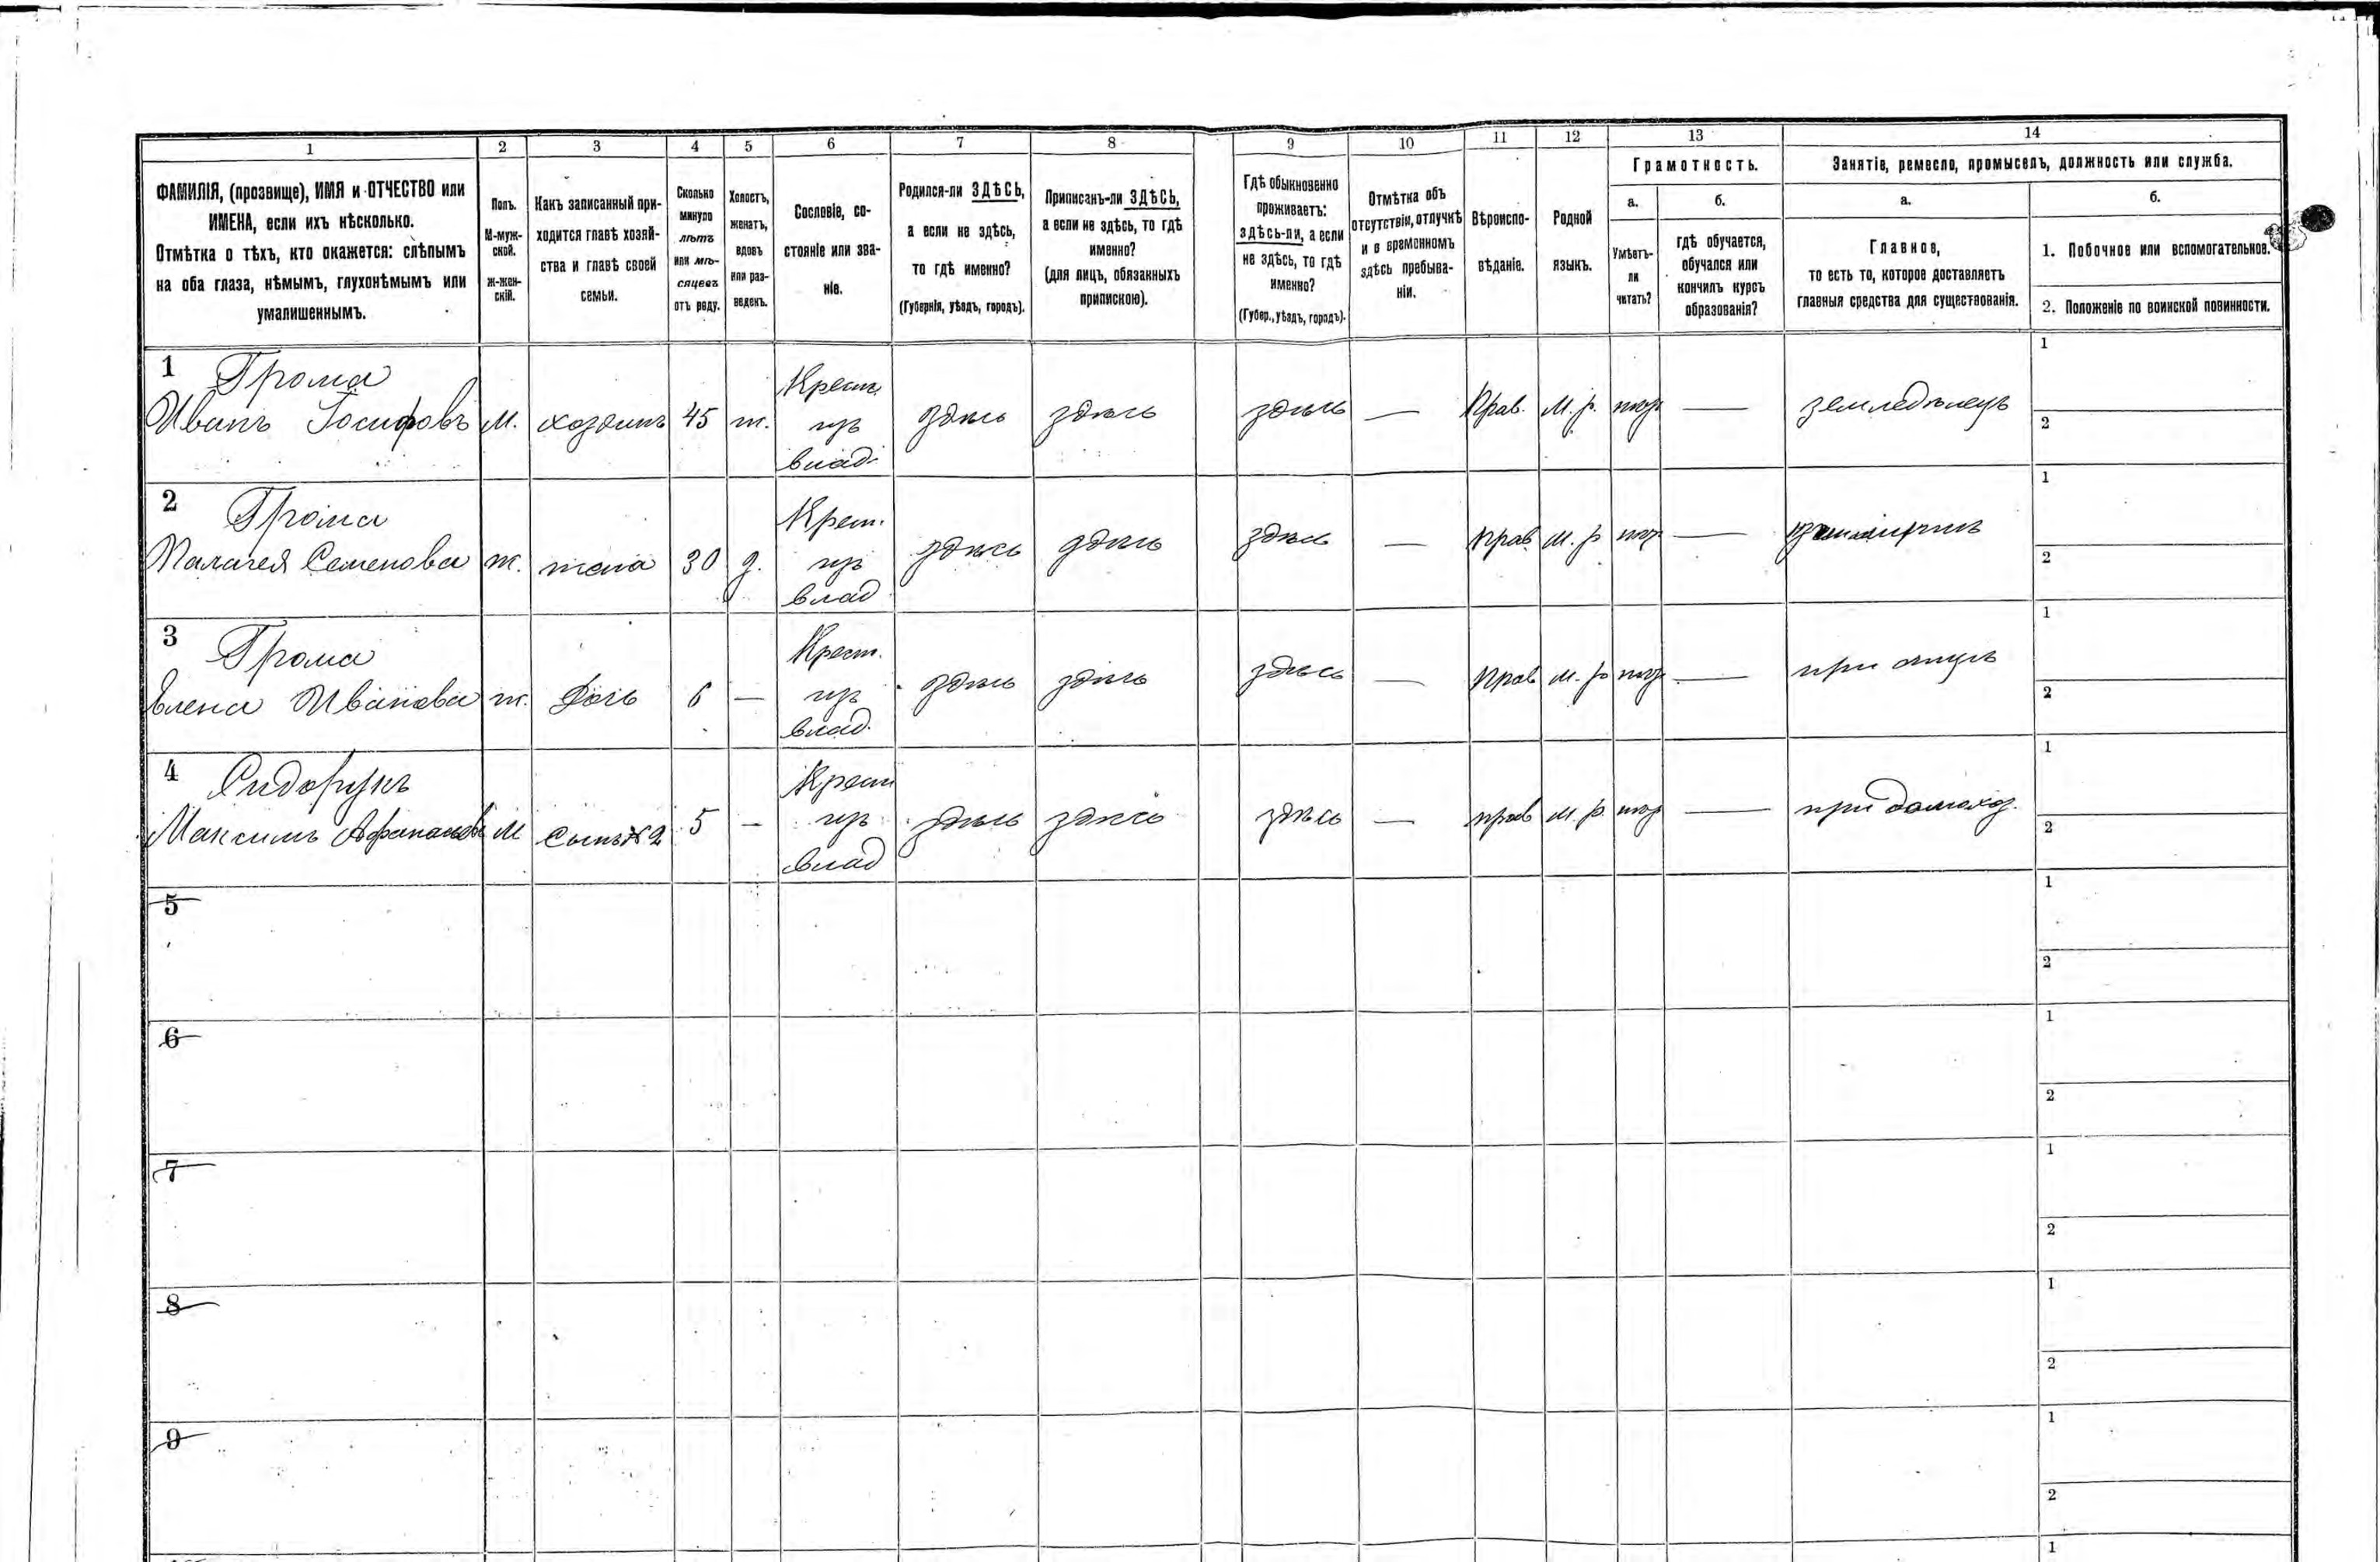 1 2 3 4 5 6 7 8 9 10 11 12 13 14
ФАМИЛІЯ, (прозвище), ИМЯ и ОТЧЕСТВО или
ИМЕНА, если ихъ нѣсколько.
Отмѣтка о тѣхъ, кто окажется: слѣпымъ
на оба глаза, нѣмымъ, глухонѣмымъ или
умалишеннымъ.
Полъ.
М-муж-
ской.
ж-жен-
скій.
Какъ записанный при-
ходится главѣ хозяй-
ства и главѣ своей
семьи.
Сколько
минуло
лѣтъ
или мѣ-
сяцевъ
отъ роду.
Холостъ,
женатъ,
вдовъ
или раз-
веденъ.
Сословіе, со-
стояніе или зва-
ніе.
Родился-ли ЗДѢСЬ,
а если не здѣсь,
то гдѣ именно?
(Губернія, уѣздъ, городъ).
Приписанъ-ли ЗДѢСЬ,
а если не здѣсь, то гдѣ
именно?
(для лицъ, обязанныхъ
припискою).
Гдѣ обыкновенно
проживаетъ:
здѣсь-ли, а если
не здѣсь, то гдѣ
именно?
(Губер., уѣздъ, городъ).
Отмѣтка объ
отсутствіи, отлучкѣ
и о временномъ
здѣсь пребыва-
ніи.
Вѣроиспо-
вѣданіе.
Родной
языкъ.
Грамотность.
а.
Умѣетъ-
ли
читать?
б.
гдѣ обучается,
обучался или
кончилъ курсъ
образованія?
Занятіе, ремесло, промыселъ, должность или служба.
а.
Главное,
то есть то, которое доставляетъ
главныя средства для существованія.
б.
1. Побочное или вспомогательное.
2. Положеніе по воинской повинности.
1 Грома
Иванъ Іосифовъ М. хозяинъ 45 ж. Крест. изъ влад. здѣсь здѣсь здѣсь — Прав. М. р. — земледѣлецъ
1
2
2 Грома
Палагея Семенова ж. жена 30 з. Крест. изъ влад здѣсь здѣсь здѣсь — прав. м. р —
1
2
3 Грома
Елена Иванова ж. дочь 6 — Крест. изъ влад. здѣсь здѣсь здѣсь — прав м. р — при отцѣ
1
2
4 Сидорукъ
Максимъ Афанасовъ М сынъ № 2 5 — Крест изъ влад здѣсь здѣсь здѣсь — прав м. р. — при домохоз.
1
2
5
1
2
6
1
2
7
1
2
8
1
2
9
1
2
1